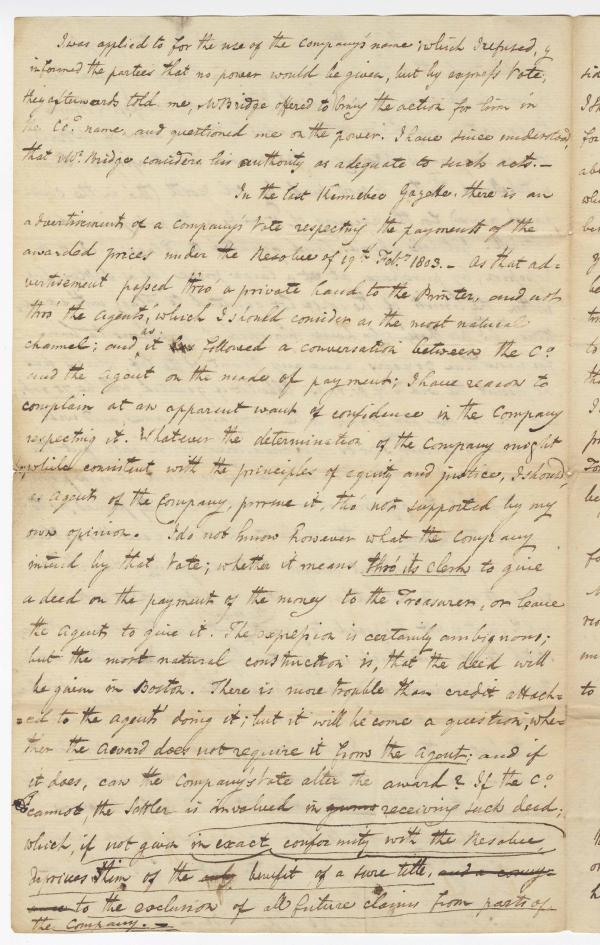 I was applied to for the use of the company's name; which I refused, &
informed the parties that no power would be given, but by express Vote;
they afterwards told me, Mr Bridge offered to bring the action for him in
the Co.'s name, and questioned me on the power. I have since understood,
that Mr. Bridge considers his authority as adequate to such acts. –
In the last Kennebec Gazette, there is an
advertisement of a company's Vote respecting the payment of the
awarded prices under the Resolve of 19th. Feb.y 1803. – As that ad=
vertisement passed thro' a private hand to the Printer, and not
thro' the Agents', which I should consider as the most natural
channel; and as it followed a conversation between the Co.
and the Agent on the mode of payment; I have reason to
complain at an apparent want of confidence in the Company
respecting it. Whatever the determination of the Company might
while consistent with the principles of equity and justice, I should,
as Agent of the Company, pursue it, tho' not supported by my
own opinion. I do not know however what the company
intend by that Vote; whether it means thro' its clerk to give
a deed on the payment of the money to the Treasurer, or leave
the Agent to give it. The expression is certainly ambiguous;
but the most natural construction is, that the deed will
be given in Boston. There is more trouble than credit attach=
=ed to the agents doing it; but it will become a question, whe=
ther the Award does not require it from the Agent; and if
it does, can the Company's Vote alter the award? If the Co.
cannot, the Settler is involved in receiving such deed;
which, if not given in exact conformity with the Resolve,
deprives him of the benefit of a sure title, and a convey=
to the exclusion of all future claims from parts of
the Company. –